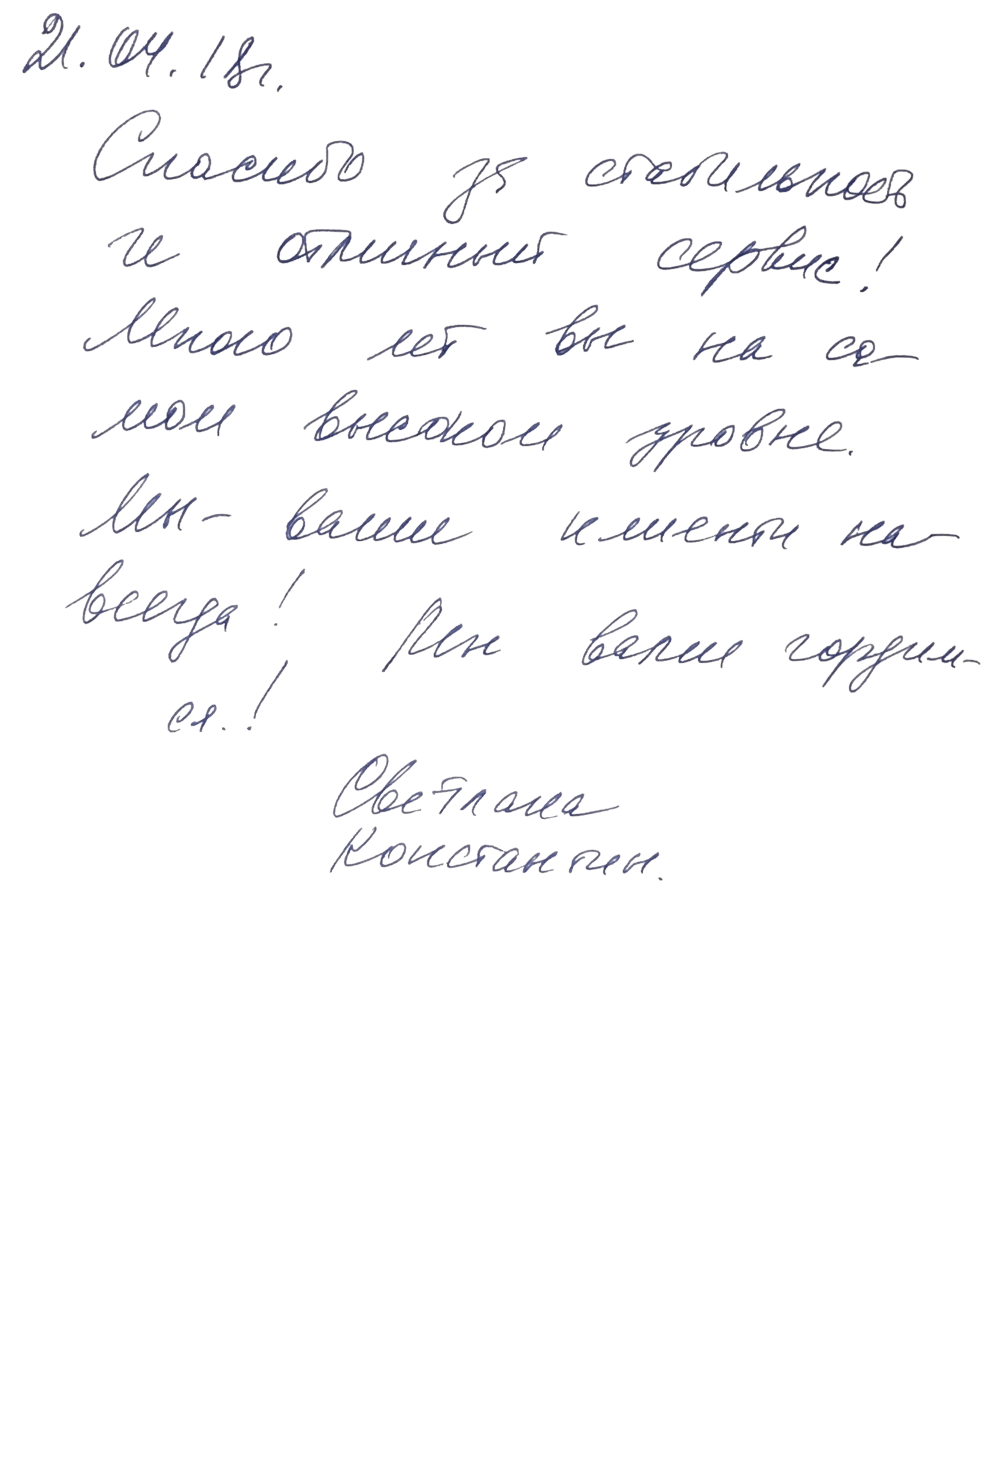 21.04.18г.
Спасибо за стабильность
и отличный сервис!
Много лет вы на са-
мом высоком уровне.
Мы - ваши клиенты на-
всегда! Мы вами гордим-
ся.!
Светлана
Константин.